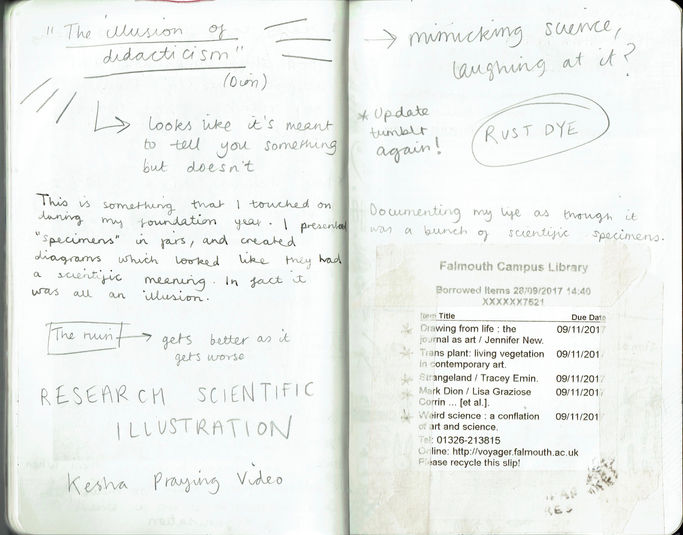 "The illusion of
didacticism"
(Dion)
looks like it's meant
to tell you something
but doesn't
This is something that I touched on
during my foundation year. I presented
"specimens" in jars, and created
diagrams which looked like they had
a scientific meaning. In fact it
was all an illusion.
The ruin → gets better as it
gets worse
RESEARCH SCIENTIFIC
ILLUSTRATION
Kesha Praying Video
→ mimicking science,
laughing at it?
* Update
tumblr
again!
RUST DYE
Documenting my life as though it
was a bunch of scientific specimens.
Falmouth Campus Library
Borrowed Items 28/09/2017 14:40
XXXXXX7521
Item Title Due Date
* Drawing from life : the 09/11/2017
journal as art / Jennifer New.
* Trans plant: living vegetation 09/11/2017
in contemporary art.
* Strangeland / Tracey Emin. 09/11/2017
* Mark Dion / Lisa Graziose 09/11/2017
Corrin ... [et al.].
* Weird science : a conflation 09/11/2017
of art and science.
Tel: 01326-213815
Online: http://voyager.falmouth.ac.uk
Please recycle this slip!